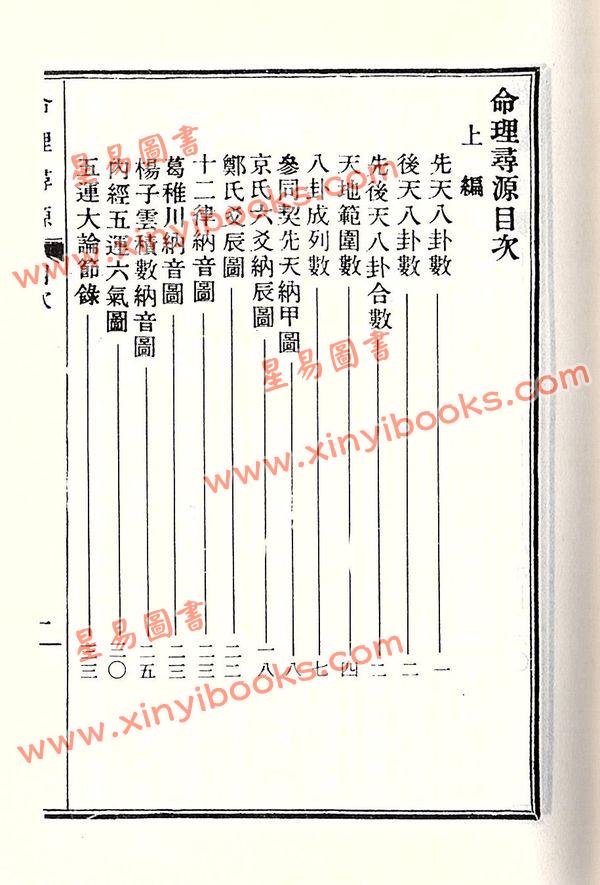 命理尋源目次
上編
先天八卦數 一
後天八卦數 二
先後天八卦合數 二
天地範圍數 四
八卦成列數 七
參同契先天納甲圖 八
京氏六爻納辰圖 一八
鄭氏爻辰圖 二二
十二律納音圖 二三
葛稚川納音圖 二三
楊子雲積數納音圖 二五
內經五運六氣圖 三〇
五運大論節錄 三三
命理尋源
目次
一
星易圖書
www.xinyibooks.com
星易圖書
www.xinyibooks.com
星易圖書
www.xinyibooks.com